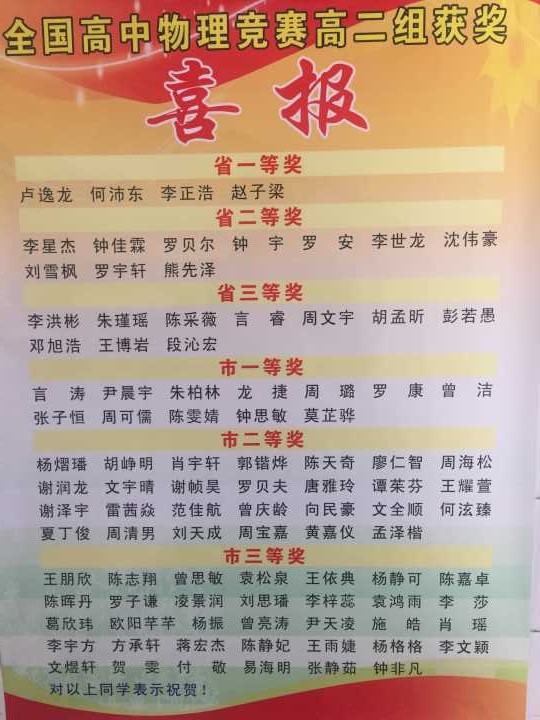 全国高中物理竞赛高二组获奖
喜报
省一等奖
卢逸龙 何沛东 李正浩 赵子梁
省二等奖
李星杰 钟佳霖 罗贝尔 钟 宇 罗 安 李世龙 沈伟豪
刘雪枫 罗宇轩 熊先泽
省三等奖
李洪彬 朱瑾瑶 陈采薇 言 睿 周文宇 胡孟昕 彭若愚
邓旭浩 王博岩 段沁宏
市一等奖
言 涛 尹晨宇 朱柏林 龙 捷 周 璐 罗 康 曾 洁
张子恒 周可儒 陈雯婧 钟思敏 莫芷骅
市二等奖
杨熠璠 胡峥明 肖宇轩 郭锴烨 陈天奇 廖仁智 周海松
谢润龙 文宇晴 谢帧昊 罗贝夫 唐雅玲 谭茱芬 王耀萱
谢泽宇 雷茜焱 范佳航 曾庆龄 向民豪 文全顺 何泫臻
夏丁俊 周清男 刘天成 周宝嘉 黄嘉仪 孟泽楷
市三等奖
王朋欣 陈志翔 曾思敏 袁松泉 王依典 杨静可 陈嘉卓
陈晖丹 罗子谦 凌景润 刘思璠 李梓蕊 袁鸿雨 李 莎
葛欣玮 欧阳芊芊 杨振 曾亮涛 尹天凌 施 皓 肖 瑶
李宇方 方承轩 蒋宏杰 陈静妃 王雨婕 杨格格 李文颖
文煜轩 贺 雯 付 敬 易海明 张静茹 钟非凡
对以上同学表示祝贺！